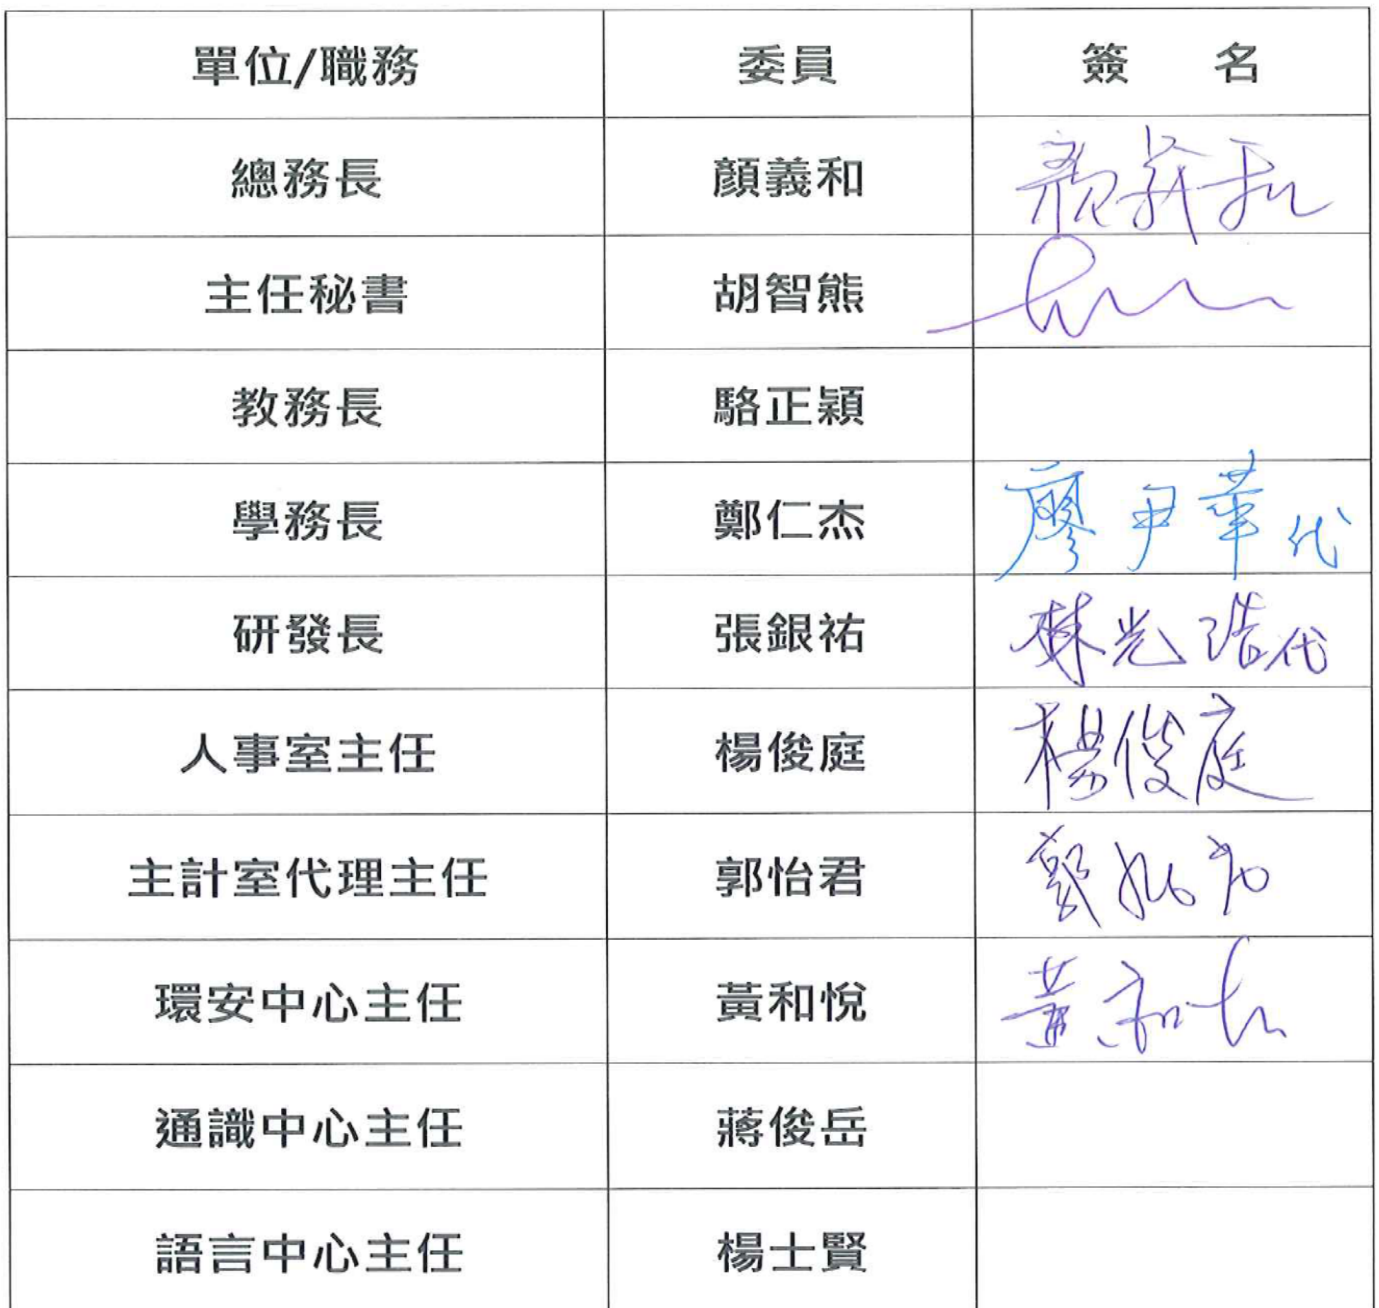 單位/職務 委員 簽 名
總務長 顏義和 顏義和
主任秘書 胡智熊
教務長 駱正穎
學務長 鄭仁杰 廖尹華代
研發長 張銀祐 林光浩代
人事室主任 楊俊庭 楊俊庭
主計室代理主任 郭怡君
環安中心主任 黃和悅 黃和悅
通識中心主任 蔣俊岳
語言中心主任 楊士賢